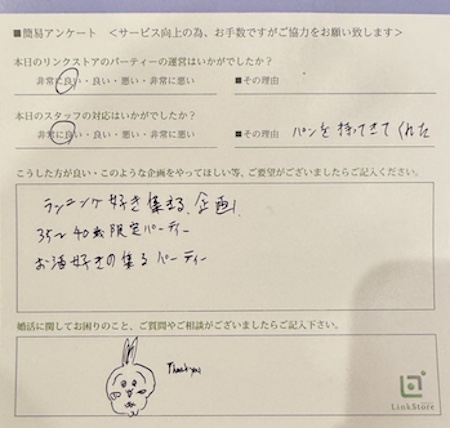 ■簡易アンケート ＜サービス向上の為、お手数ですがご協力をお願い致します＞
本日のリンクストアのパーティーの運営はいかがでしたか？
非常に良い・良い・悪い・非常に悪い ■その理由
本日のスタッフの対応はいかがでしたか？
非常に良い・良い・悪い・非常に悪い ■その理由 パンを持ってきてくれた
こうした方が良い・このような企画をやってほしい等、ご要望がございましたらご記入ください。
ランニング好き集まる、企画、
35〜40歳限定パーティー
お酒好きの集るパーティー
婚活に関してお困りのこと、ご質問やご相談がございましたらご記入下さい。
Thank you
LinkStore